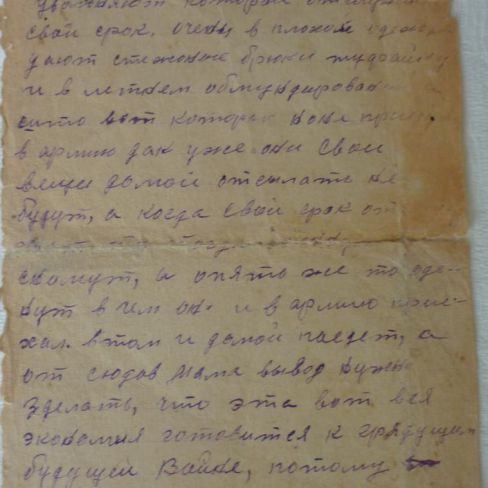 свой срок, очень в плохой одежде
дают стеженые брюки
и в летнем обмундировании а
сито вот которые коне
в армию дак уже они свои
вещи домой отсылать не
будут, а когда свой срок от
скажут, а опять же то оде-
нут в чем он и в армию прие-
хал в том и домой поедет, а
от сюдов мама вывод нужно
зделать, что эта вот вся
экономия готовится к грядущим
будущей Войне, потому